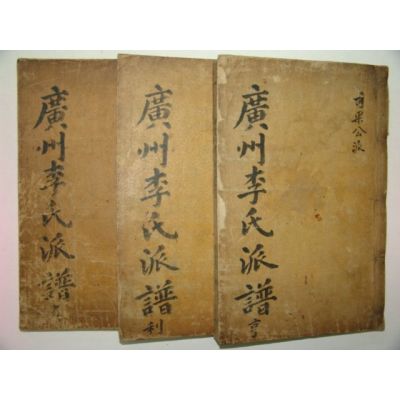 司果公派
廣州李氏派譜 亨
廣州李氏派譜 利
廣州李氏派譜